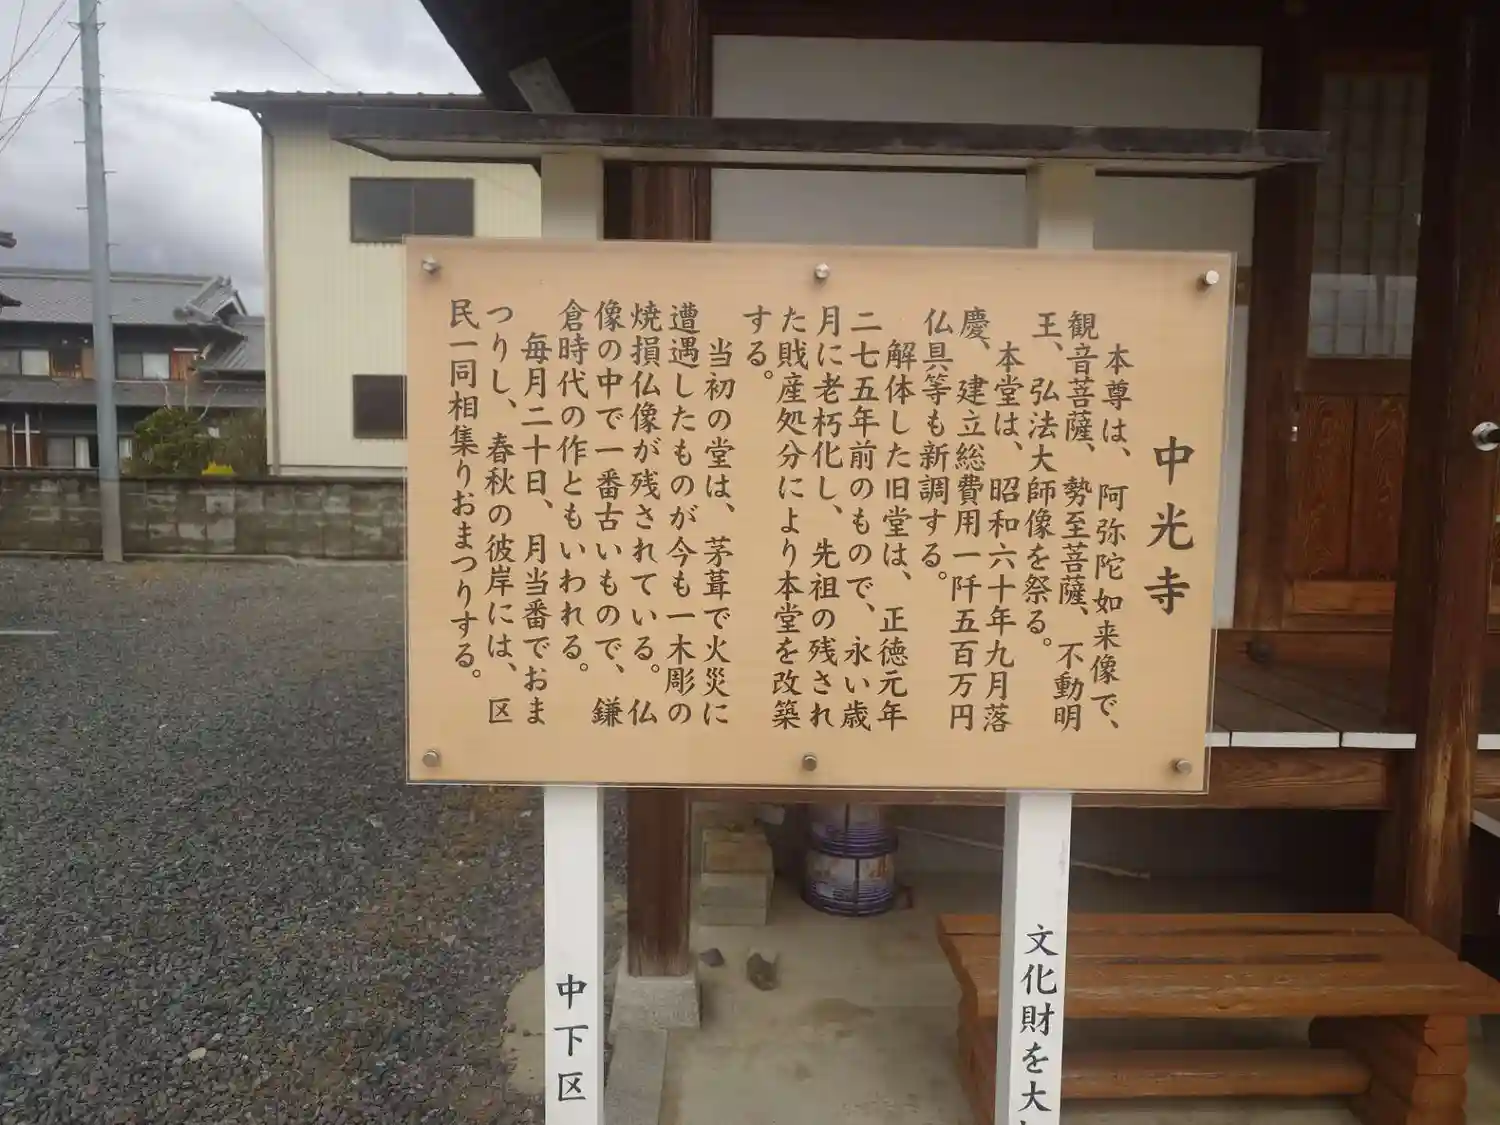 中光寺
本尊は、阿弥陀如来像で、
観音菩薩、勢至菩薩、不動明
王、弘法大師像を祭る。
本堂は、昭和六十年九月落
慶、建立総費用一阡五百万円
仏具等も新調する。
解体した旧堂は、正徳元年
二七五年前のもので、永い歳
月に老朽化し、先祖の残され
た財産処分により本堂を改築
する。
当初の堂は、茅葺で火災に
遭遇したものが今も一木彫の
焼損仏像が残されている。仏
像の中で一番古いもので、鎌
倉時代の作ともいわれる。
毎月二十日、月当番でおま
つりし、春秋の彼岸には、区
民一同相集りおまつりする。
文化財を大
中下区